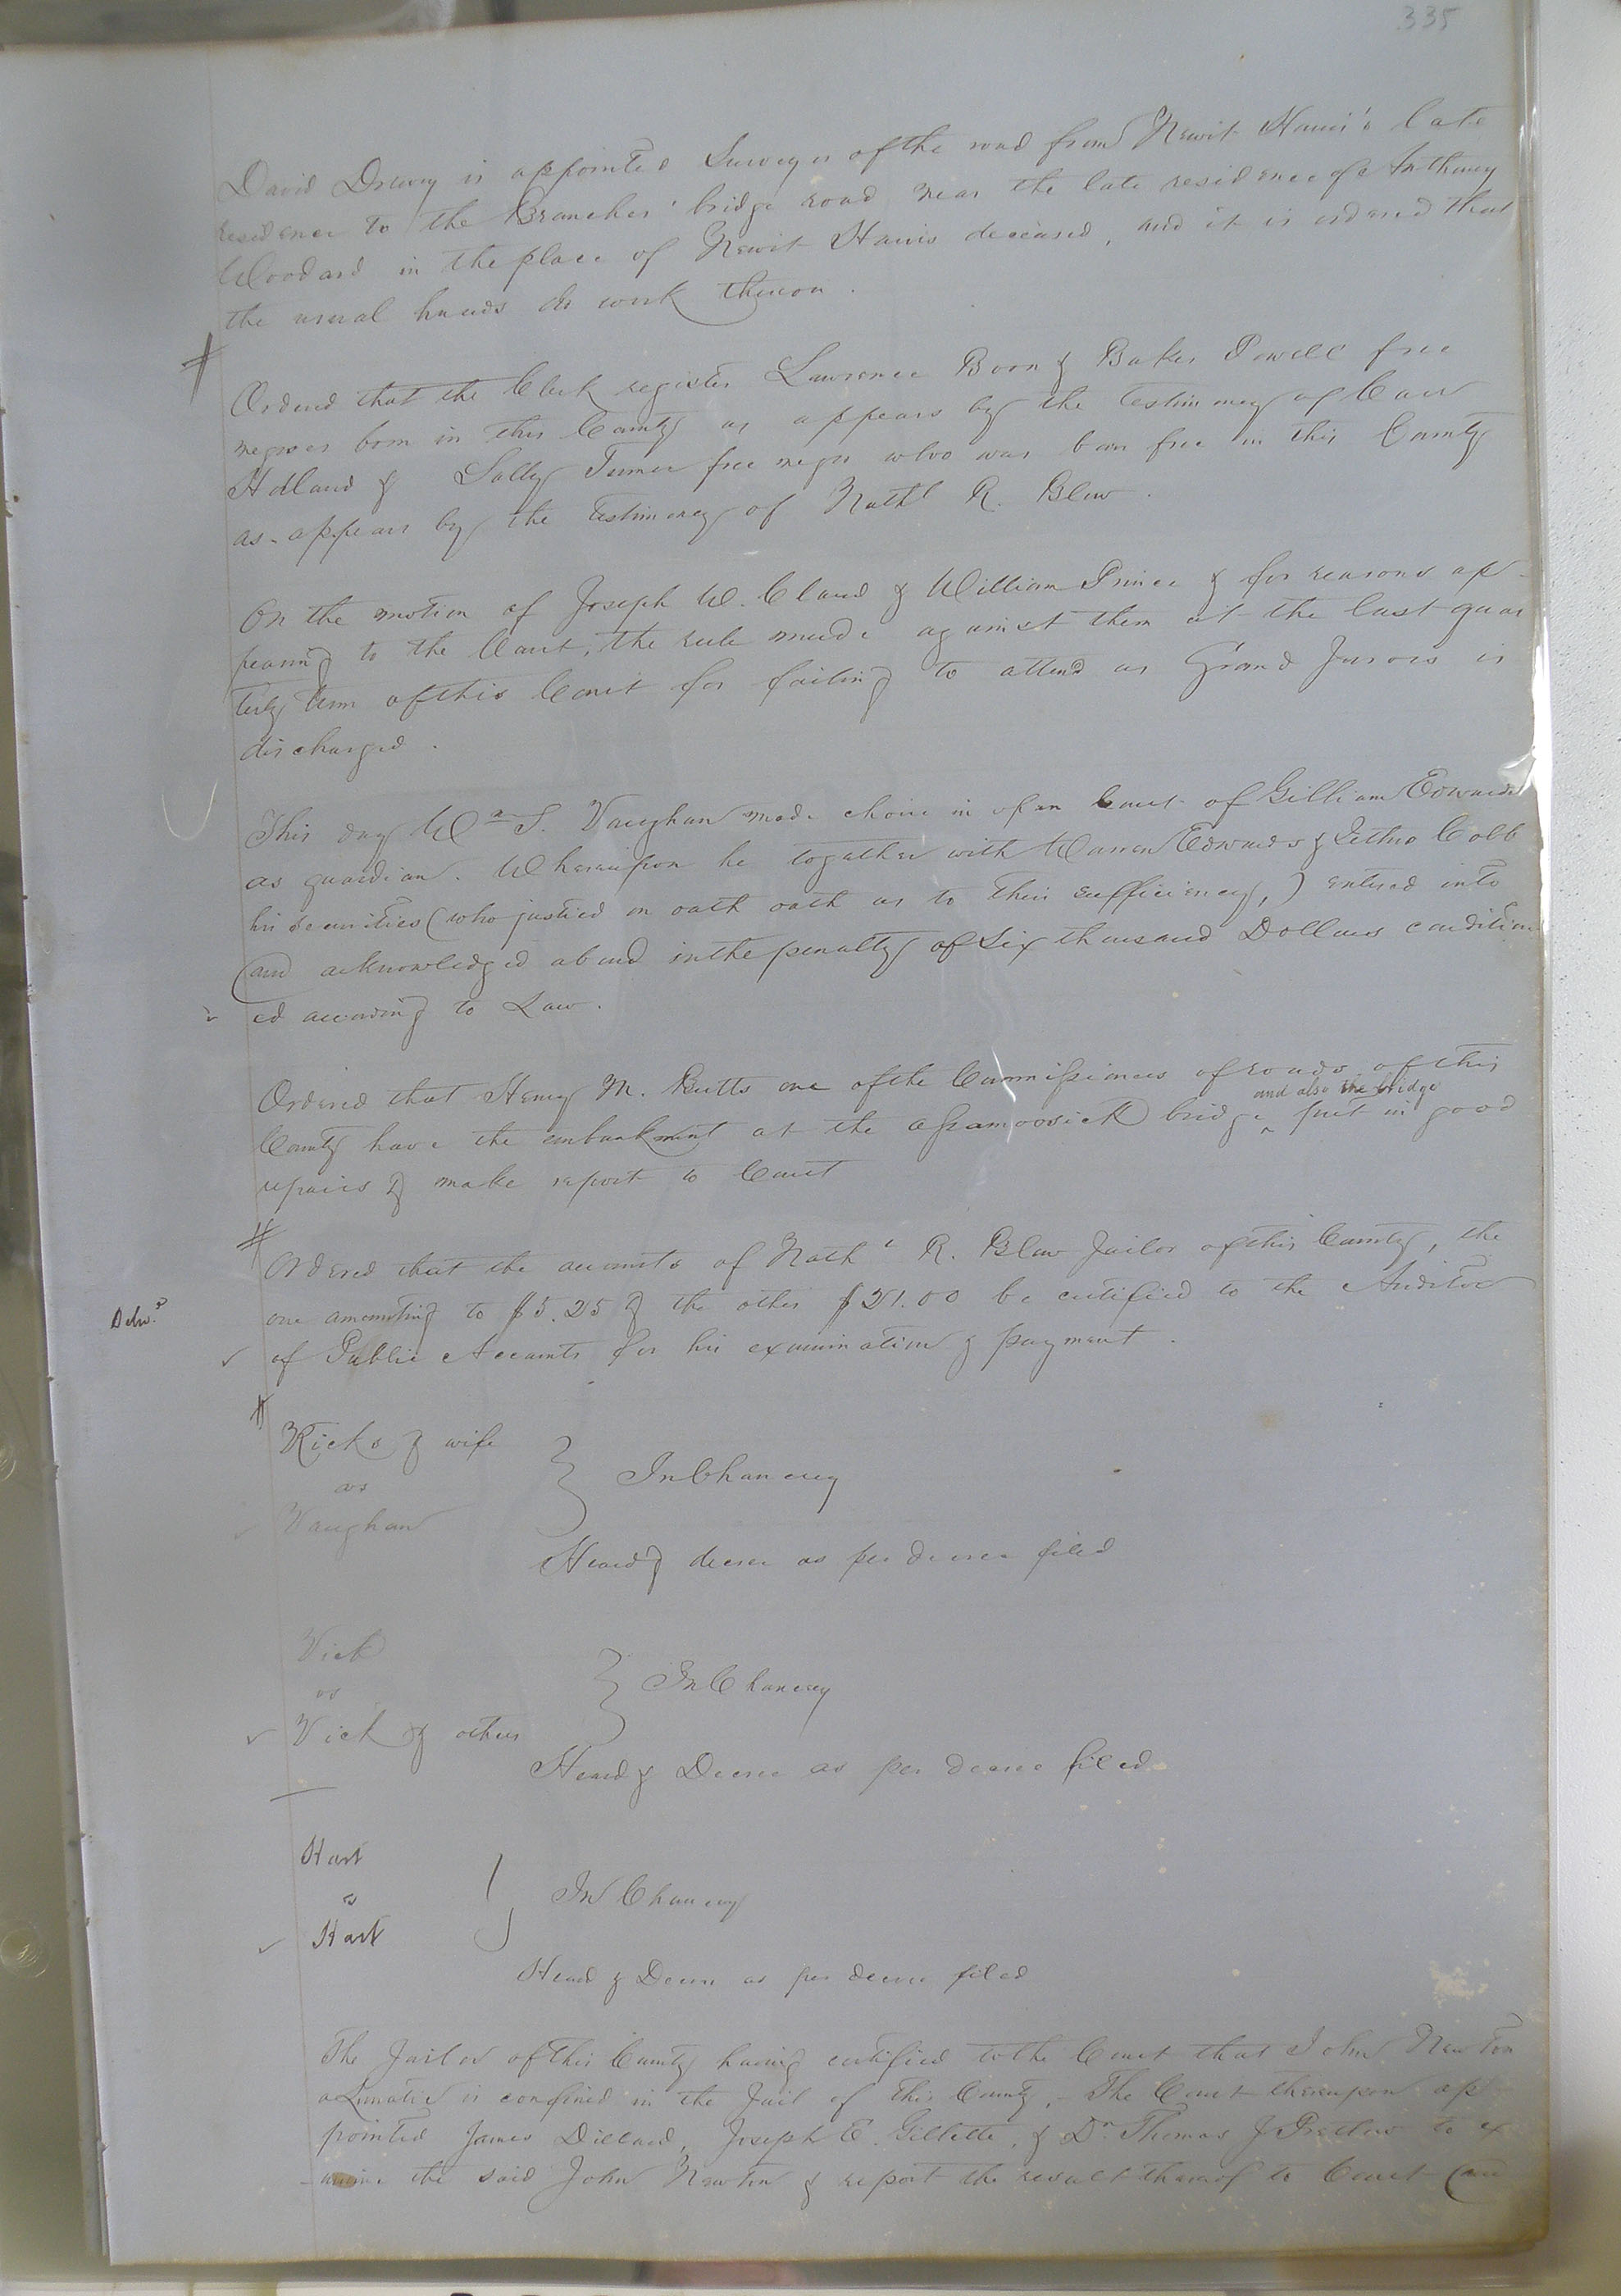 335
David Drewry is appointed Surveyor of the road from Newit Harris's late
residence to the Branches' bridge road near the late residence of Anthony
Woodard in the place of Newit Harris deceased, and it is ordered that
the usual hands do work thereon.
Ordered that the Clerk register Lawrence Boon & Baker Powell free
negroes born in this County as appears by the testimony of Carr
Holland & Sally Turner free negro who was born free in this County
as appears by the testimony of Nathl R. Blow.
On the motion of Joseph W. Claud & William Prince & for reasons ap-
pearing to the Court, the rule made against them at the last quar
terly term of this Court for failing to attend as Grand Jurors is
discharged.
This day Wm S. Vaughan made choice in open Court of Gilliam Edwards
as guardian. Whereupon he together with Warren Edwards & Jethro Cobb
his securities (who justied on oath oath as to their sufficiency,) entered into
and acknowledged a bond in the penalty of Six thousand Dollars condition
ed according to Law.
Ordered that Henry M. Butts one of the Commissioners of roads of this
and also the bridge
County have the embankment at the Assamoosick bridge ^ put in good
repairs & make report to Court
Ordered that the accounts of Nathl R. Blow Jailor of this County, the
one amounting to $5.25 & the other $21.00 be certified to the Auditor
Deliv.d
of Public Accounts for his examination & payment.
Ricks & wife
vs } In Chancery
Vaughan
Heard & decree as per decree filed
Vick
vs } In Chancery
Vick & others
Heard & Decree as per decree filed
Hart
vs } In Chancery
Hart
Heard & Decree as per decree filed
The Jailor of this County having certified to the Court that John Newton
a Lunatic is confined in the Jail of this County,- The Court thereupon ap
pointed James Dillard, Joseph E. Gillette, & Dr Thomas J Pretlow to ex
-amine the said John Newton & report the result thereof to Court and